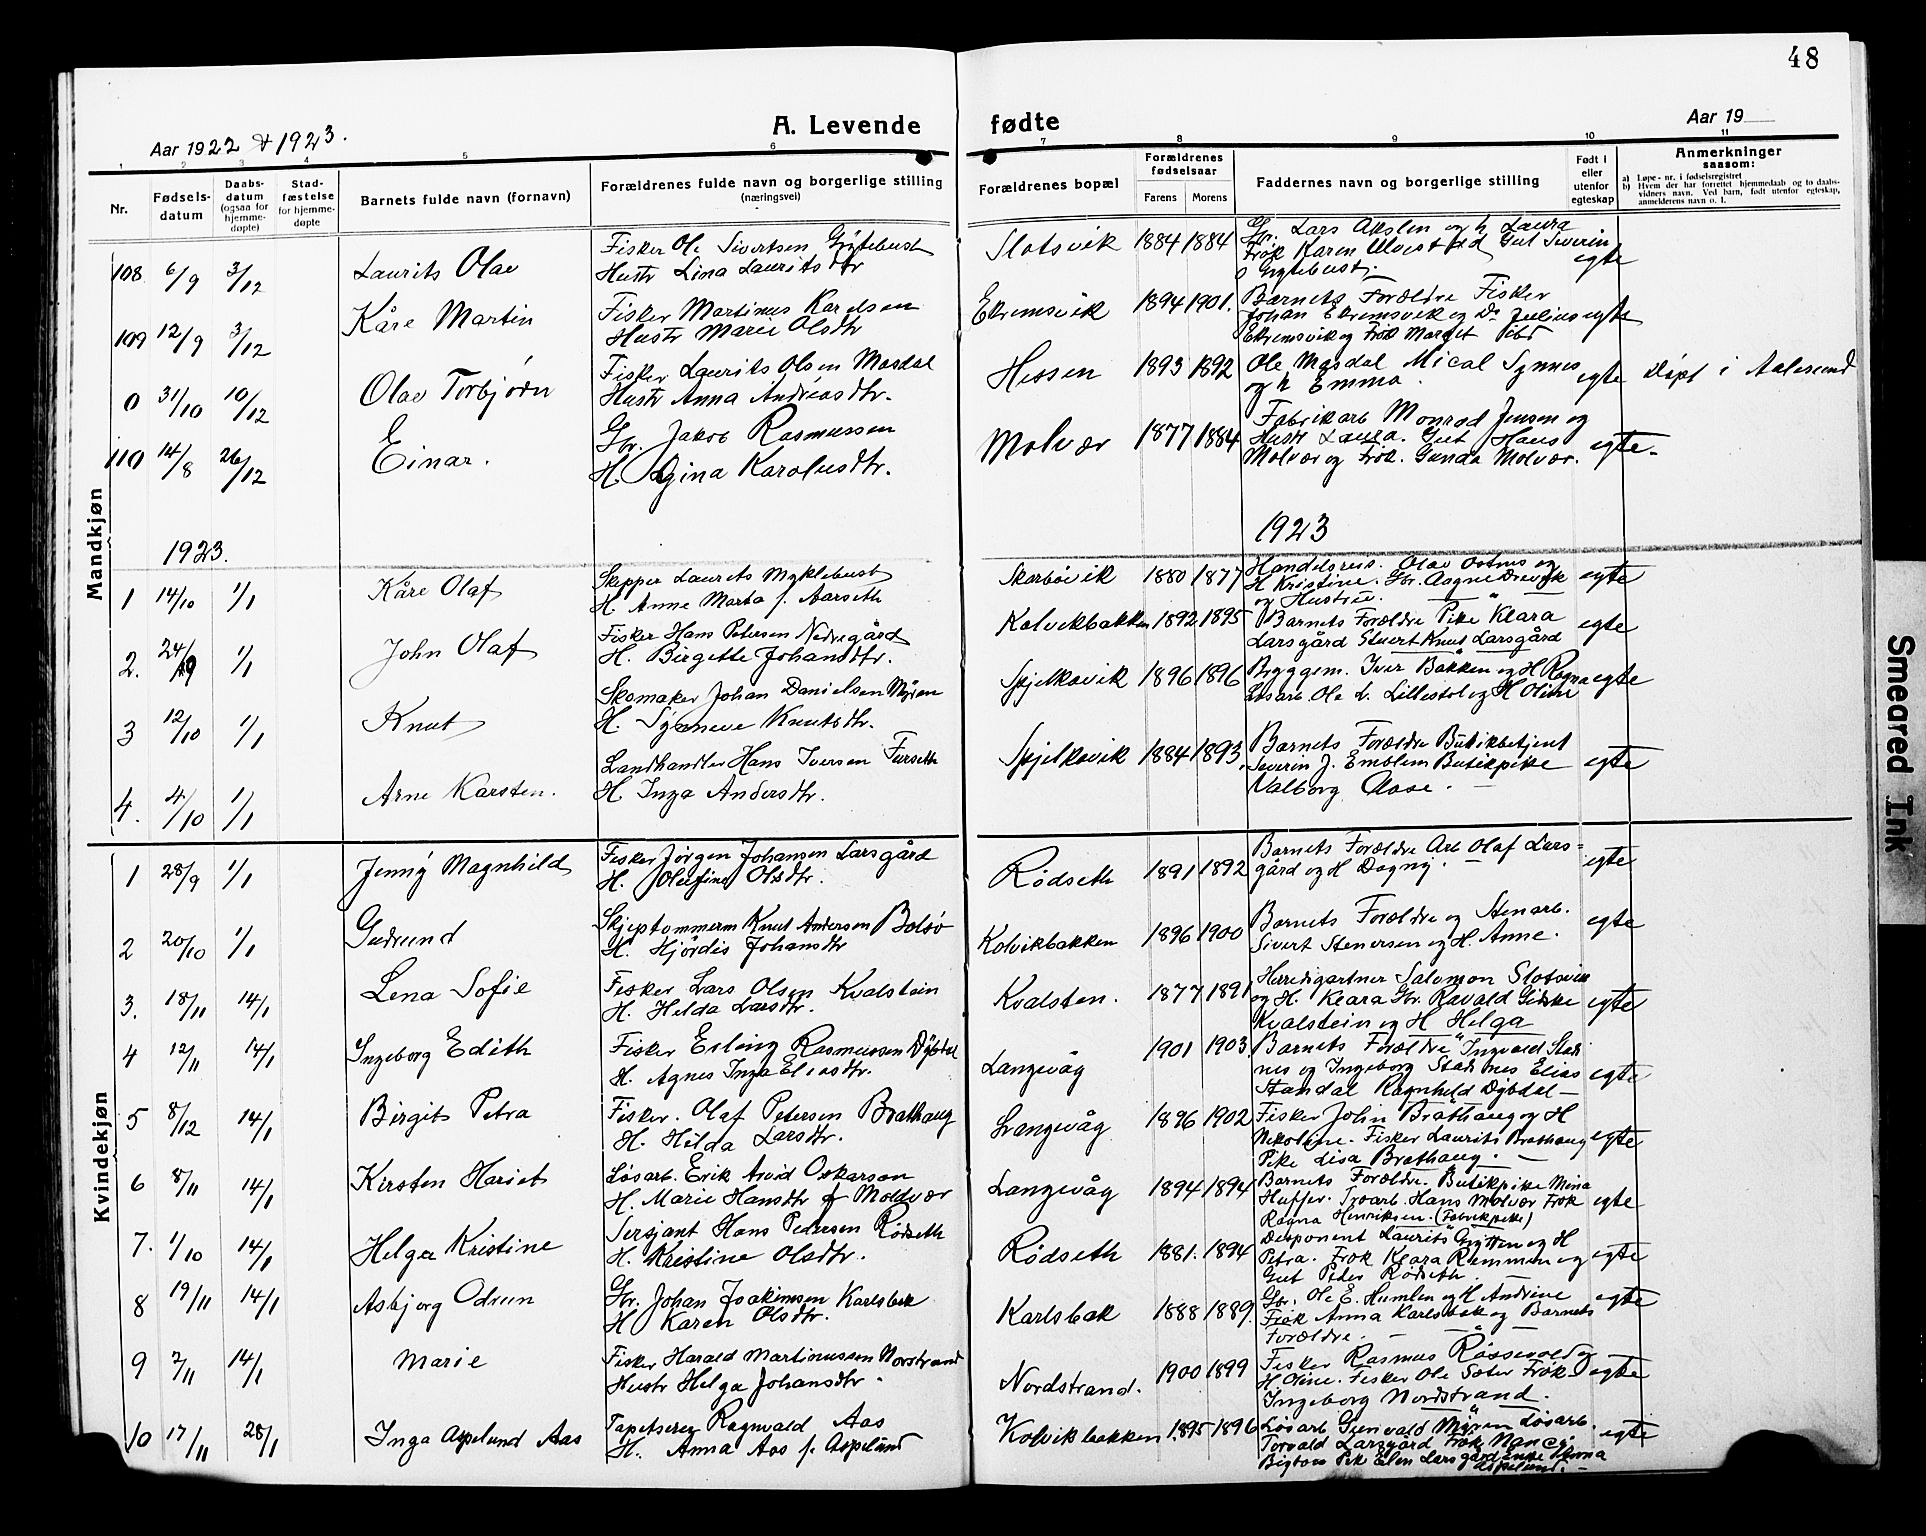 48
Aar 1922 & 1923.
A. Levende fødte
Aar 19
1 2 3 4 5 6 7 8 9 10 11
Nr.
Fødsels-
datum
Daabs-
datum
(ogsaa for
hjemme-
døpte)
Stad-
fæstelse
for hjemme-
døpte
Barnets fulde navn (fornavn)
Forældrenes fulde navn og borgerlige stilling
(næringsvei)
Forældrenes bopæl
Forældrenes
fødselsaar
Farens Morens
Faddernes navn og borgerlige stilling
Født i
eller
utenfor
egteskap
Anmerkninger
saasom:
a) Løpe-nr. i fødselsregistret
b) Hvem der har forrettet hjemmedaab og to daabs-
vidners navn. Ved barn, født utenfor egteskap,
anmelderens navn o. l.
Mandkjøn
108 6/9 3/12 Laurits Olav
Fisker Ole Sivertsen Grytebust
Hustr Lina Laurits dtr
Slotsvik 1884 1884
Gbr. Lars Akslen og h Laura
Frøk Karen Gut Severin
Grytebust.
egte
109 12/9 3/12 Kåre Martin
Fisker Martinus Karlsen
Hustr Marie Olsdtr
Ekremsvik 1894 1901.
Barnets Forældre Fisker
Johan Ekremsvik og Do Julius
Ekremsvik og Frøk Margot
egte
0 31/10 10/12 Olav Torbjørn
Fisker Laurits Olsen Masdal
Hustr Anna Andreasdtr.
Hessen 1893 1892
Ole Masdal Mical Synnes
og h Emma.
egte
Døpt i Aalesund
110 14/8 26/12 Einar.
Gbr. Jakob Rasmussen
H. Agina Karolusdtr.
Molvær 1877 1884
Fabrikarb Monrad Jensen og
Hustr Laura. Gut Hans
Molvær og Frøk. Gunda Molvær.
egte.
1923.
1923
1 14/10 1/1 Kåre Olaf
Skipper Laurits Myklebust
H. Anne Marta f. Aarseth
Skarbøvik 1880 1877
Handelsreis. Olav Ostnes og
H Kristine. Gbr. Aagne Drevik
og Hustru.
egte
2. 24/9 1/1 John Olaf
Fisker Hans Petersen Nedregård
H. Birgitte Johansdtr.
Kolvikbakken 1892 1895
Barnets Forældre Pike Klara
Larsgård Stuert Knut Larsgård
egte
3 12/10 1/1 Knut
Skomaker Johan Danielsen Myren
H. Synneve Knutsdtr.
Spjelkavik 1896 1896
Byggem. Iver Bakken og H Ragna
Løsarb Ole L. Lillestol og H Oline
egte
4. 4/10 1/1 Arne Karsten.
Landhandler Hans Iversen Furseth
H Inga Andersdtr.
Spjelkavik 1884 1893
Barnets Forældre Butikbetjent
Severin J. Emblem Butikpike
Valborg Aase.
egte
Kvindekjøn
1 28/9 1/1 Jenny Magnhild
Fisker Jørgen Johansen Larsgård
H. Olufine Olsdtr.
Rødseth 1891 1892
Barnets Forældre Arb Olaf Lars-
gård og H Dagny.
egte
2 20/10 1/1 Gudrund
Skjeptømmerm Knut Andersen Bolsø
H. Hjördis Johansdtr
Kolvikbakken 1896 1900
Barnets Forældre og Stenarb.
Sivert Stenersen og H. Anne.
egte
3. 18/11 14/1 Lena Sofie
Fisker Lars Olsen Kvalstein
H. Helda Larsdtr.
Kvalsten. 1877 1891
Herredsgartner Salomon Slotsvik
og H. Klara Gbr. Ravald Giske
Kvalstein og H Helga
egte
4 12/11 14/1 Ingeborg Edith
Fisker Erling Rasmussen Dybdal
H. Agnes Inga Eliasdtr.
Langevåg 1901 1903
Barnets Forældre Ingvald Stad-
nes og Ingeborg Stadsnes Elias
Standal Ragnhild Dybdal
egte
5 8/12 14/1 Birgit Petra
Fisker. Olaf Petersen Brathaug
H. Hilda Larsdtr.
Langevåg 1896 1902
Fisker John Brathaug og H
Nikoline. Fisker Laurits Brathaug
Pike Lisa Brathaug.
egte
6 8/11 14/1 Kirsten Hariet
Løsarb. Erik Arvid Oskarson
H. Marie Hansdtr f Moldvær
Langevåg 1894 1894
Barnets Forældre. Butikpike Mina
Huffer. Hans Molvær Frøk
Ragna Henriksen. (Fabrikpike)
egte
7. 1/10 14/1 Helga Kristine
Sersjant Hans Pedersen Rødseth
H. Kristine Olsdtr.
Rødseth 1881. 1894
Disponent Laurits Grytten og H
Petra. Frøk Klara Remmen og
Gut Peder Rødseth.
egte
8 19/11 14/1 Asbjorg Odrun
Gbr. Johan Joakimsen Karlsbak
H Karen Olsdtr.
Karlsbak 1888 1889.
Gbr. Ole E. Humlen og H Andrine
Frøk Anna Karlsbak og Barnets
Forældre.
egte
9 2/11 14/1 Marie
Fisker Harald Martinussen Norstrand
Hustr Helga Johansdtr.
Nordstrand. 1900 1899
Fisker Rasmus Røssevold og
H Oline. Fisker Ole Sæter Frøk
Ingeborg Nordstrand.
egte
10 17/11 28/1 Inga Aspelund Aas
Tapetserer Ragnvald Aas
H. Anna Aas f. Aspelund
Kolvikbakken 1895 1896
Løsarb Gunvald Myren Løsarb.
Torvald Larsgård Frøk Nancy
Bigton Pik Elen Larsgård Enke Anna
Aspelund.
egte
Smeared Ink